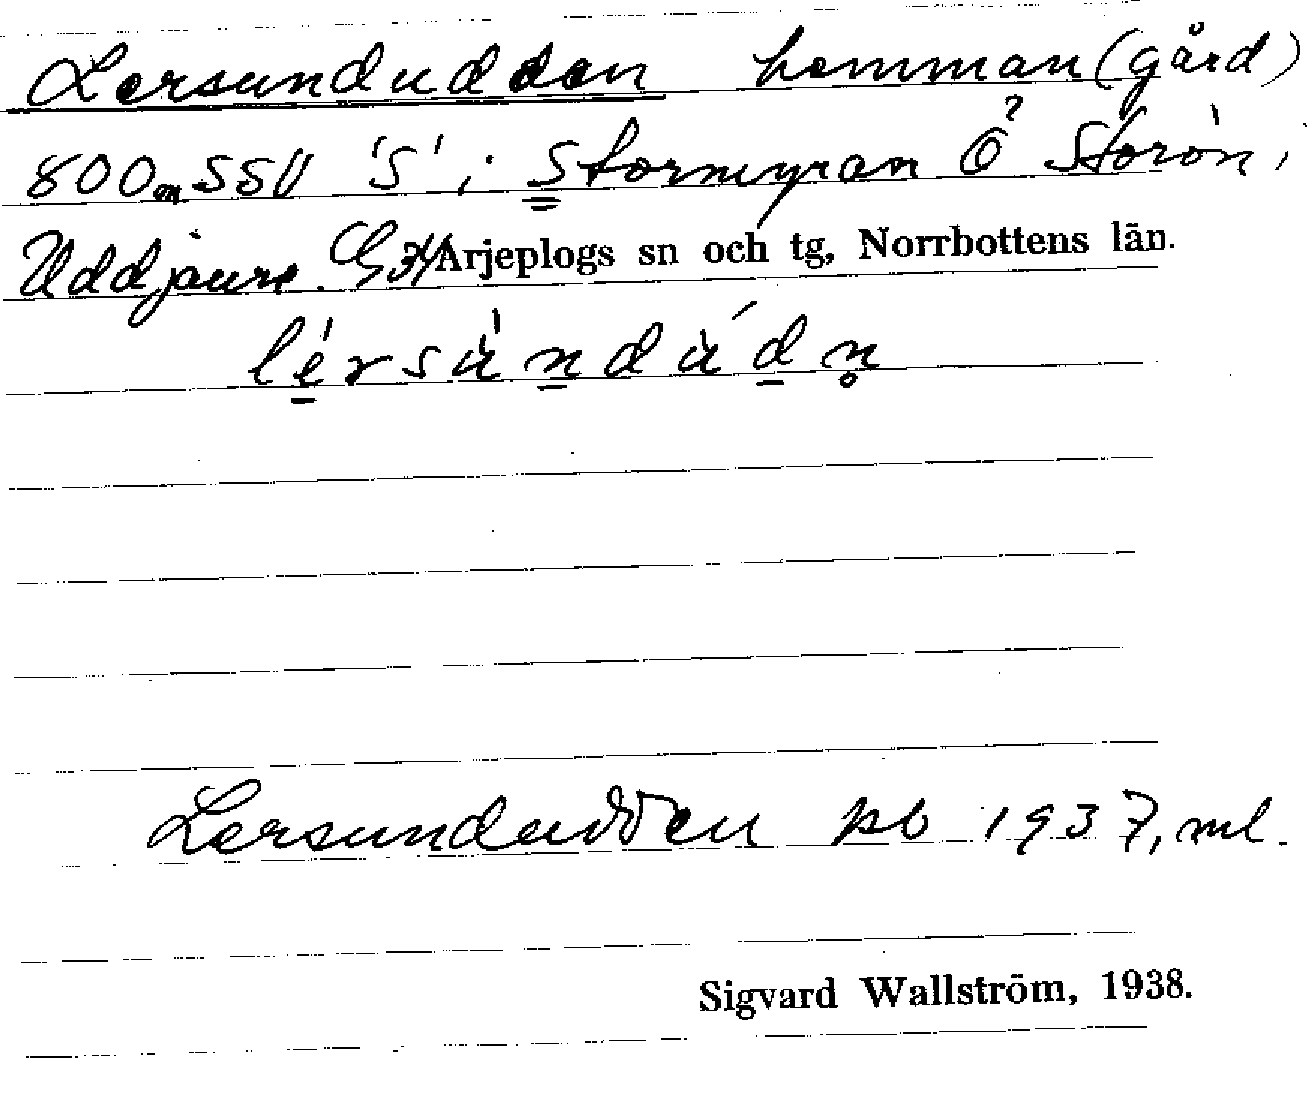 Lersundudden hemman (gård)
800 m SSV 'S' i Stormyran Ö Storön,
Uddjaure. Arjeplogs sn och tg, Norrbottens län.
lérsùndùdn
Lersundudden pb 1937, ml.
Sigvard Wallström, 1938.